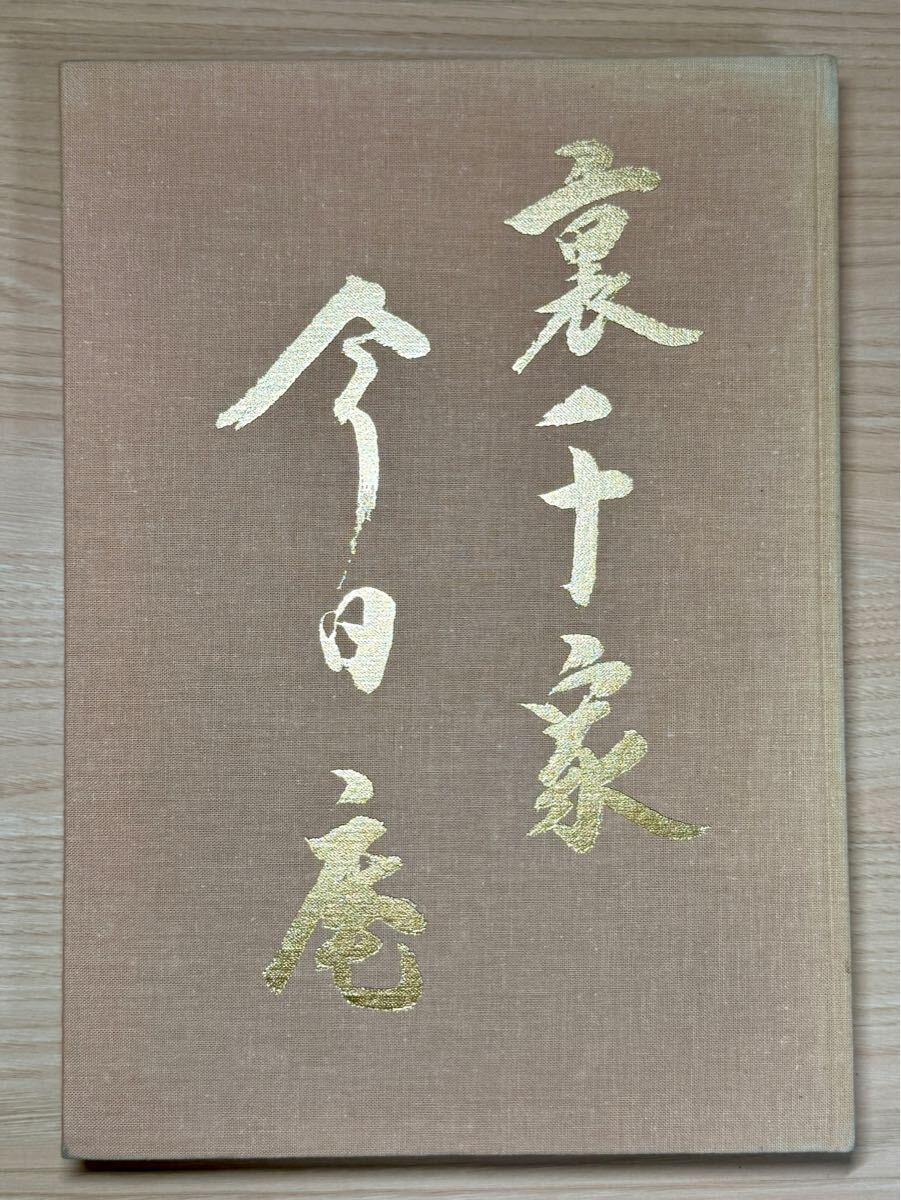 裏千家
今日庵